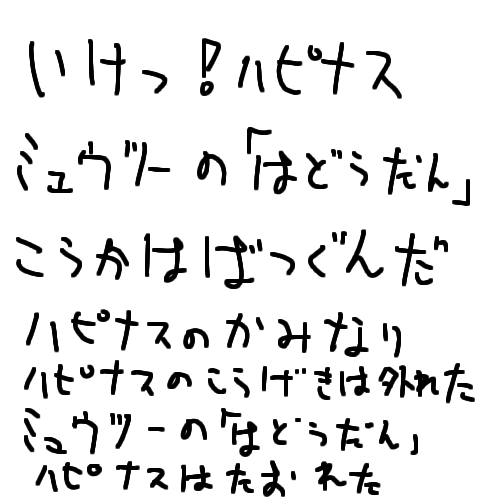 いけっ!ハピナス
ミュウツーの「はどうだん」
こうかはばつぐんだ
ハピナスのかみなり
ハピナスのこうげきは外れた
ミュウツーの「はどうだん」
ハピナスはたおれた